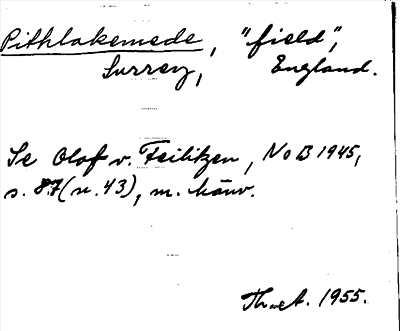 Pithlakemede, "field",
Surrey, England.
Se Olof v. Feilitzen, NoB 1945,
s. 87 (n. 43), m. hänv.
1955.